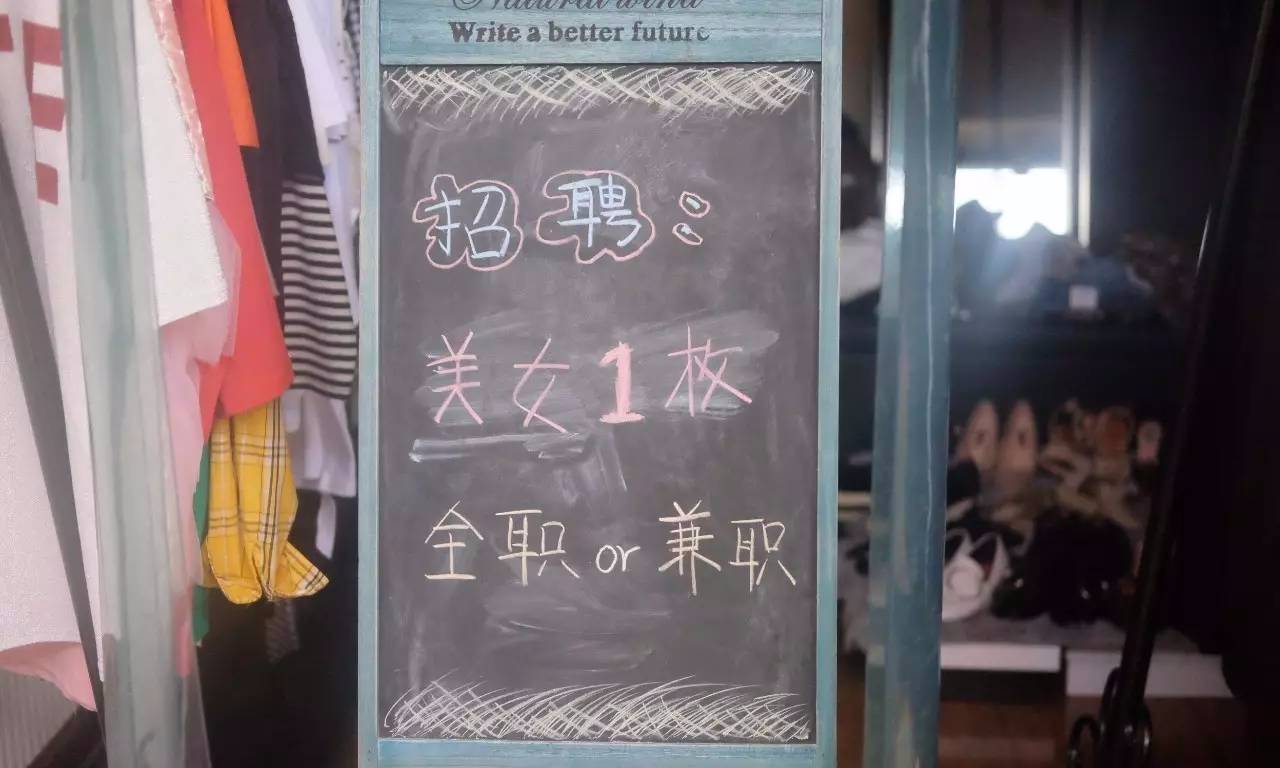 Natural wind
Write a better future
招聘：
美女1枚
全职or兼职